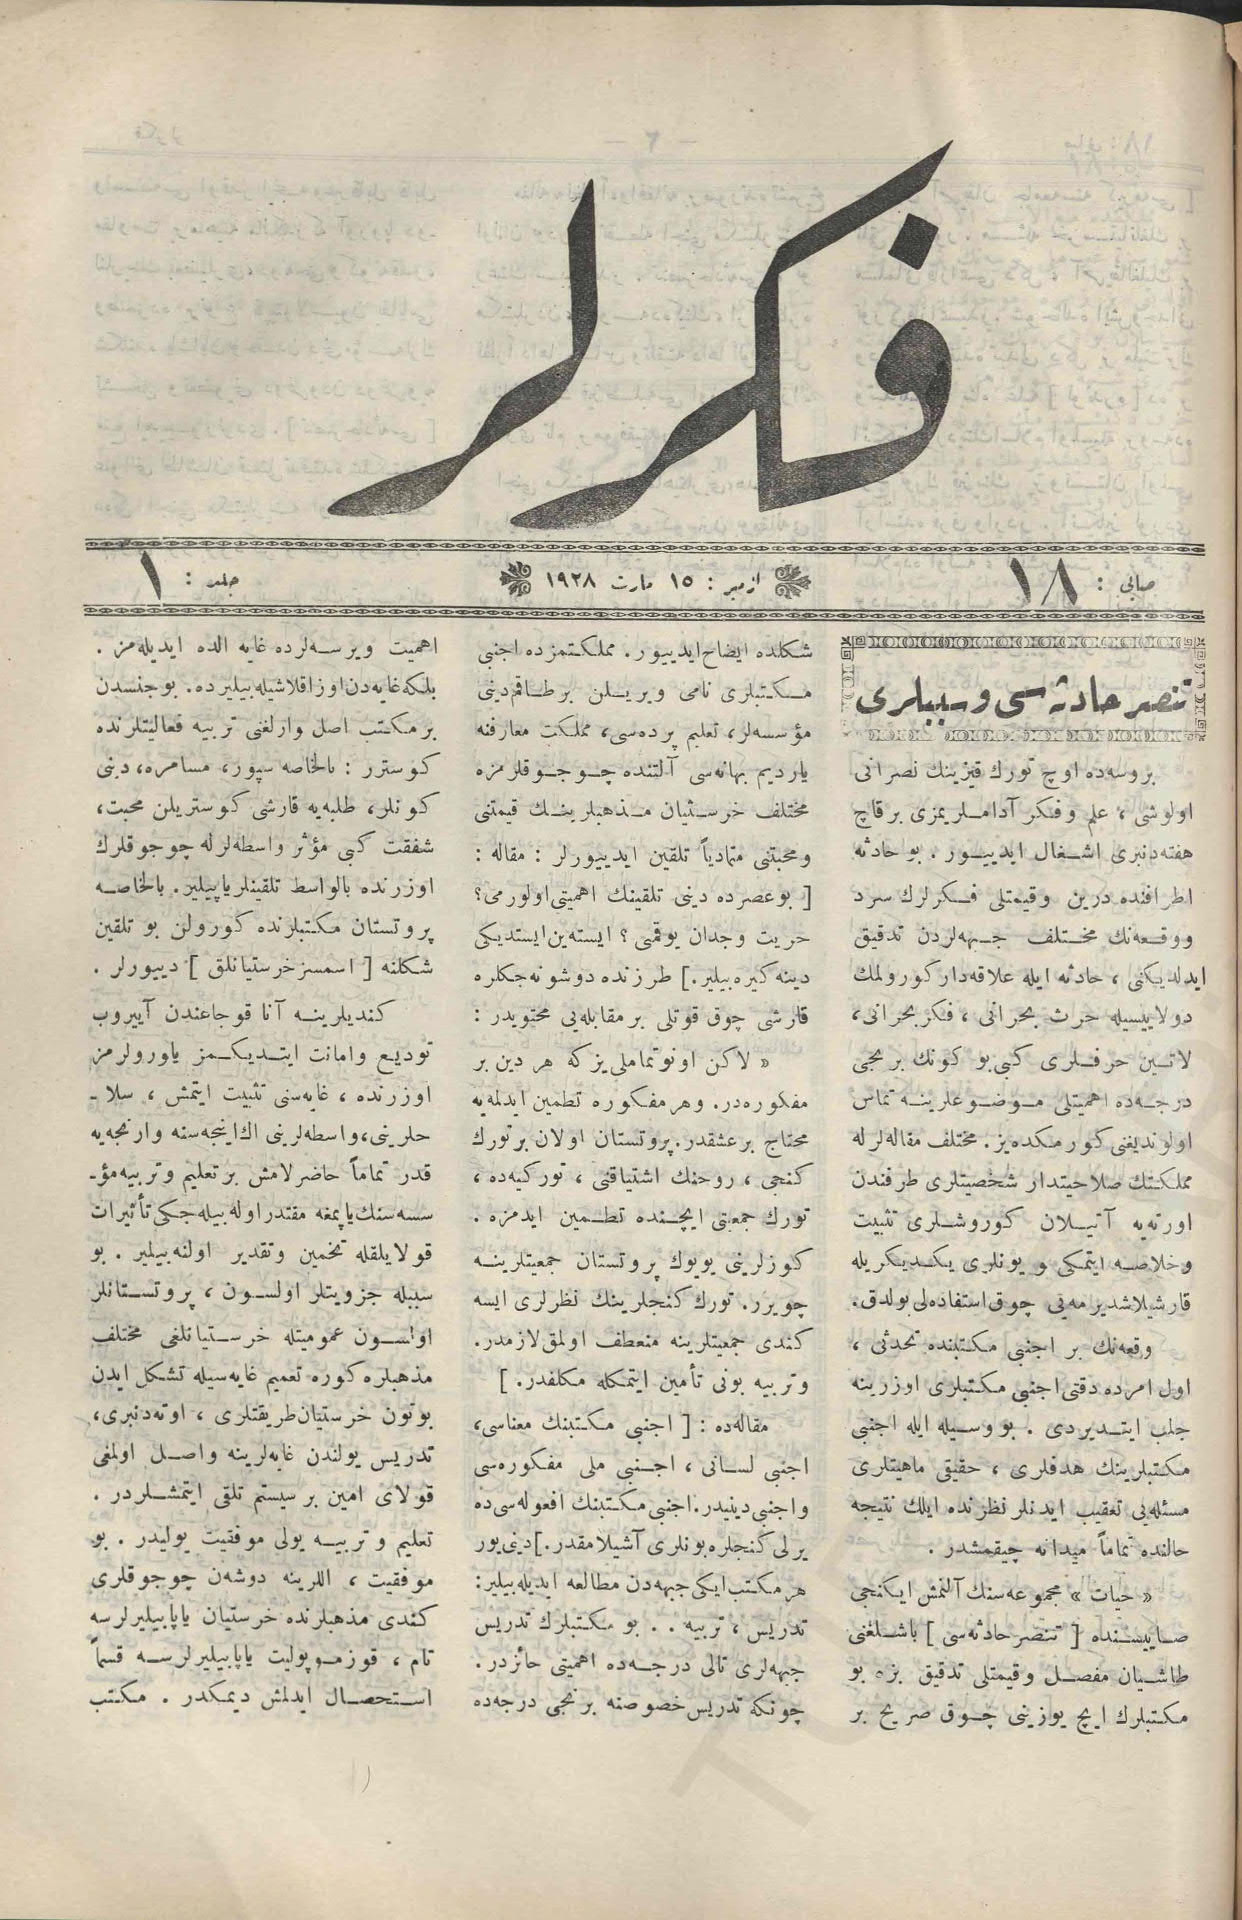 فكرلر
صايى : ١٨
ازمير : ١٥ مارت ١٩٢٨
جلد : ١
تنصر حادثه سى و سببلرى
بروسه‌ده اوچ تورك قيزينك نصرانى
اولوشى ، علم وفكر آداملريمزى برقاچ
هفته‌دنبرى اشغال ايدييور . بو حادثه
اطرافنده درين وقيمتلى فكرلرك سرد
ووقعه‌نك مختلف جبهه‌لردن تدقيق
ايدلديكنى ، حادثه ايله علاقه‌دار كورولمك
دولاييسيله حرث بحرانى ، فكر بحرانى،
لاتين حرفلرى كبى بو كونك برنجى
درجه‌ده اهميتلى موضوعلرينه تماس
اولونديغنى كورمكده‌يز. مختلف مقاله‌لرله
مملكتك صلاحيتدار شخصيتلرى طرفندن
اورته‌يه آتيلان كوروشلرى تثبيت
وخلاصه ايتمكى و بونلرى يكديكريله
قارشيلاشديرمه‌يى چوق استفاده‌لى بولدق.
وقعه‌نك بر اجنبى مكتبنده تحدثى ،
اول امرده دقتى اجنبى مكتبلرى اوزرينه
جلب ايتديردى . بو وسيله ايله اجنبى
مكتبلرينك هدفلرى ، حقيقى ماهيتلرى
مسئله‌يى تعقيب ايدنلر نظرنده ايلك نتيجه
حالنده تماماً ميدانه چيقمشدر .
« حيات » مجموعه‌سنك آلتمش ايكنجى
صاييسنده [ تنصر حادثه‌سى ] باشلغنى
طاشيان مفصل وقيمتلى تدقيق بزه بو
مكتبلرك ايچ يوزينى چوق صريح بر
شكلده ايضاح ايدييور. مملكتمزده اجنبى
مكتبلرى نامى ويريلن برطاقم دينى
مؤسسه‌لر، تعليم پرده‌سى، مملكت معارفنه
يارديم بهانه‌سى آلتنده چوجوقلرمزه
مختلف خرستيان مذهبلرينك قيمتنى
ومحبتنى متمادياً تلقين ايدييورلر : مقاله :
[ بو عصرده دينى تلقينك اهميتى اولورمى؟
حريت وجدان يوقمى ؟ ايسته‌ين ايستديكى
دينه كيره‌بيلير.] طرزنده دوشونه‌جكلره
قارشى چوق قوتلى بر مقابله‌يى محتويدر :
« لاكن اونوتماملى يز كه هر دين بر
مفكوره‌در. وهر مفكوره تطمين ايدلمه‌يه
محتاج برعشقدر. پروتستان اولان برتورك
كنجى ، روحنك اشتياقنى ، توركيه‌ده ،
تورك جمعيتى ايچنده تطمين ايدمزه .
كوزلرينى بويوك پروتستان جمعيتلرينه
چويرر. تورك كنجلرينك نظرلرى ايسه
كندى جمعيتلرينه منعطف اولمق لازمدر.
وتربيه بونى تأمين ايتمكله مكلفدر. ]
مقاله‌ده : [ اجنبى مكتبنك معناسى،
اجنبى لسانى ، اجنبى ملى مفكوره‌سى
واجنبى دينيدر. اجنبى مكتبنك افعوله‌سى ده
يرلى كنجلره بونلرى آشيلامقدر.] دينييور
هر مكتب ايكى جبهه‌دن مطالعه ايديله‌بيلير:
تدريس ، تربيه . . بو مكتبلرك تدريس
جبهه‌لرى تالى درجه‌ده اهميتى حائزدر.
چونكه تدريس خصوصنه برنجى درجه‌ده
اهميت ويرسه‌لرده غايه الده ايديله‌مز .
بلكه غايه‌دن اوزاقلاشيله‌بيليرده. بو جنسدن
بر مكتب اصل وارلغنى تربيه فعاليتلرنده
كوسترر : بالخاصه سپور، مسامره، دينى
كونلر، طلبه‌يه قارشى كوستريلن محبت،
شفقت كبى مؤثر واسطه‌لرله چوجوقلرك
اوزرنده بالواسط تلقينلر ياپيلير. بالخاصه
پروتستان مكتبلرنده كورولن بو تلقين
شكلنه [ اسمسز خرستيانلق ] دييورلر .
كنديلرينه آنا قوجاغندن آييروب
توديع وامانت ايتديكمز ياورولرمز
اوزرنده ، غايه‌سنى تثبيت ايتمش ، سلا-
حلرينى، واسطه‌لرينى اك اينجه‌سنه وارنجه‌يه
قدر تماماً حاضرلامش بر تعليم وتربيه مؤ-
سسه‌سنك ياپمغه مقتدر اوله‌بيله‌جكى تأثيرات
قولايلقله تخمين وتقدير اولنه‌بيلير . بو
سببله جزويتلر اولسون ، پروتستانلر
اولسون عموميتله خرستيانلغى مختلف
مذهبلره كوره تعميم غايه‌سيله تشكل ايدن
بوتون خرستيان طريقتلرى ، اوته‌دنبرى،
تدريس يولندن غايه‌لرينه واصل اولمغى
قولاى امين بر سيستم تلقى ايتمشلردر .
تعليم و تربيه يولى موفقيت يوليدر . بو
موفقيت ، اللرينه دوشه‌ن چوجوقلرى
كندى مذهبلرنده خرستيان ياپابيليرلرسه
تام ، قوزموپوليت ياپابيليرلرسه قسماً
استحصال ايدلمش ديمكدر . مكتب